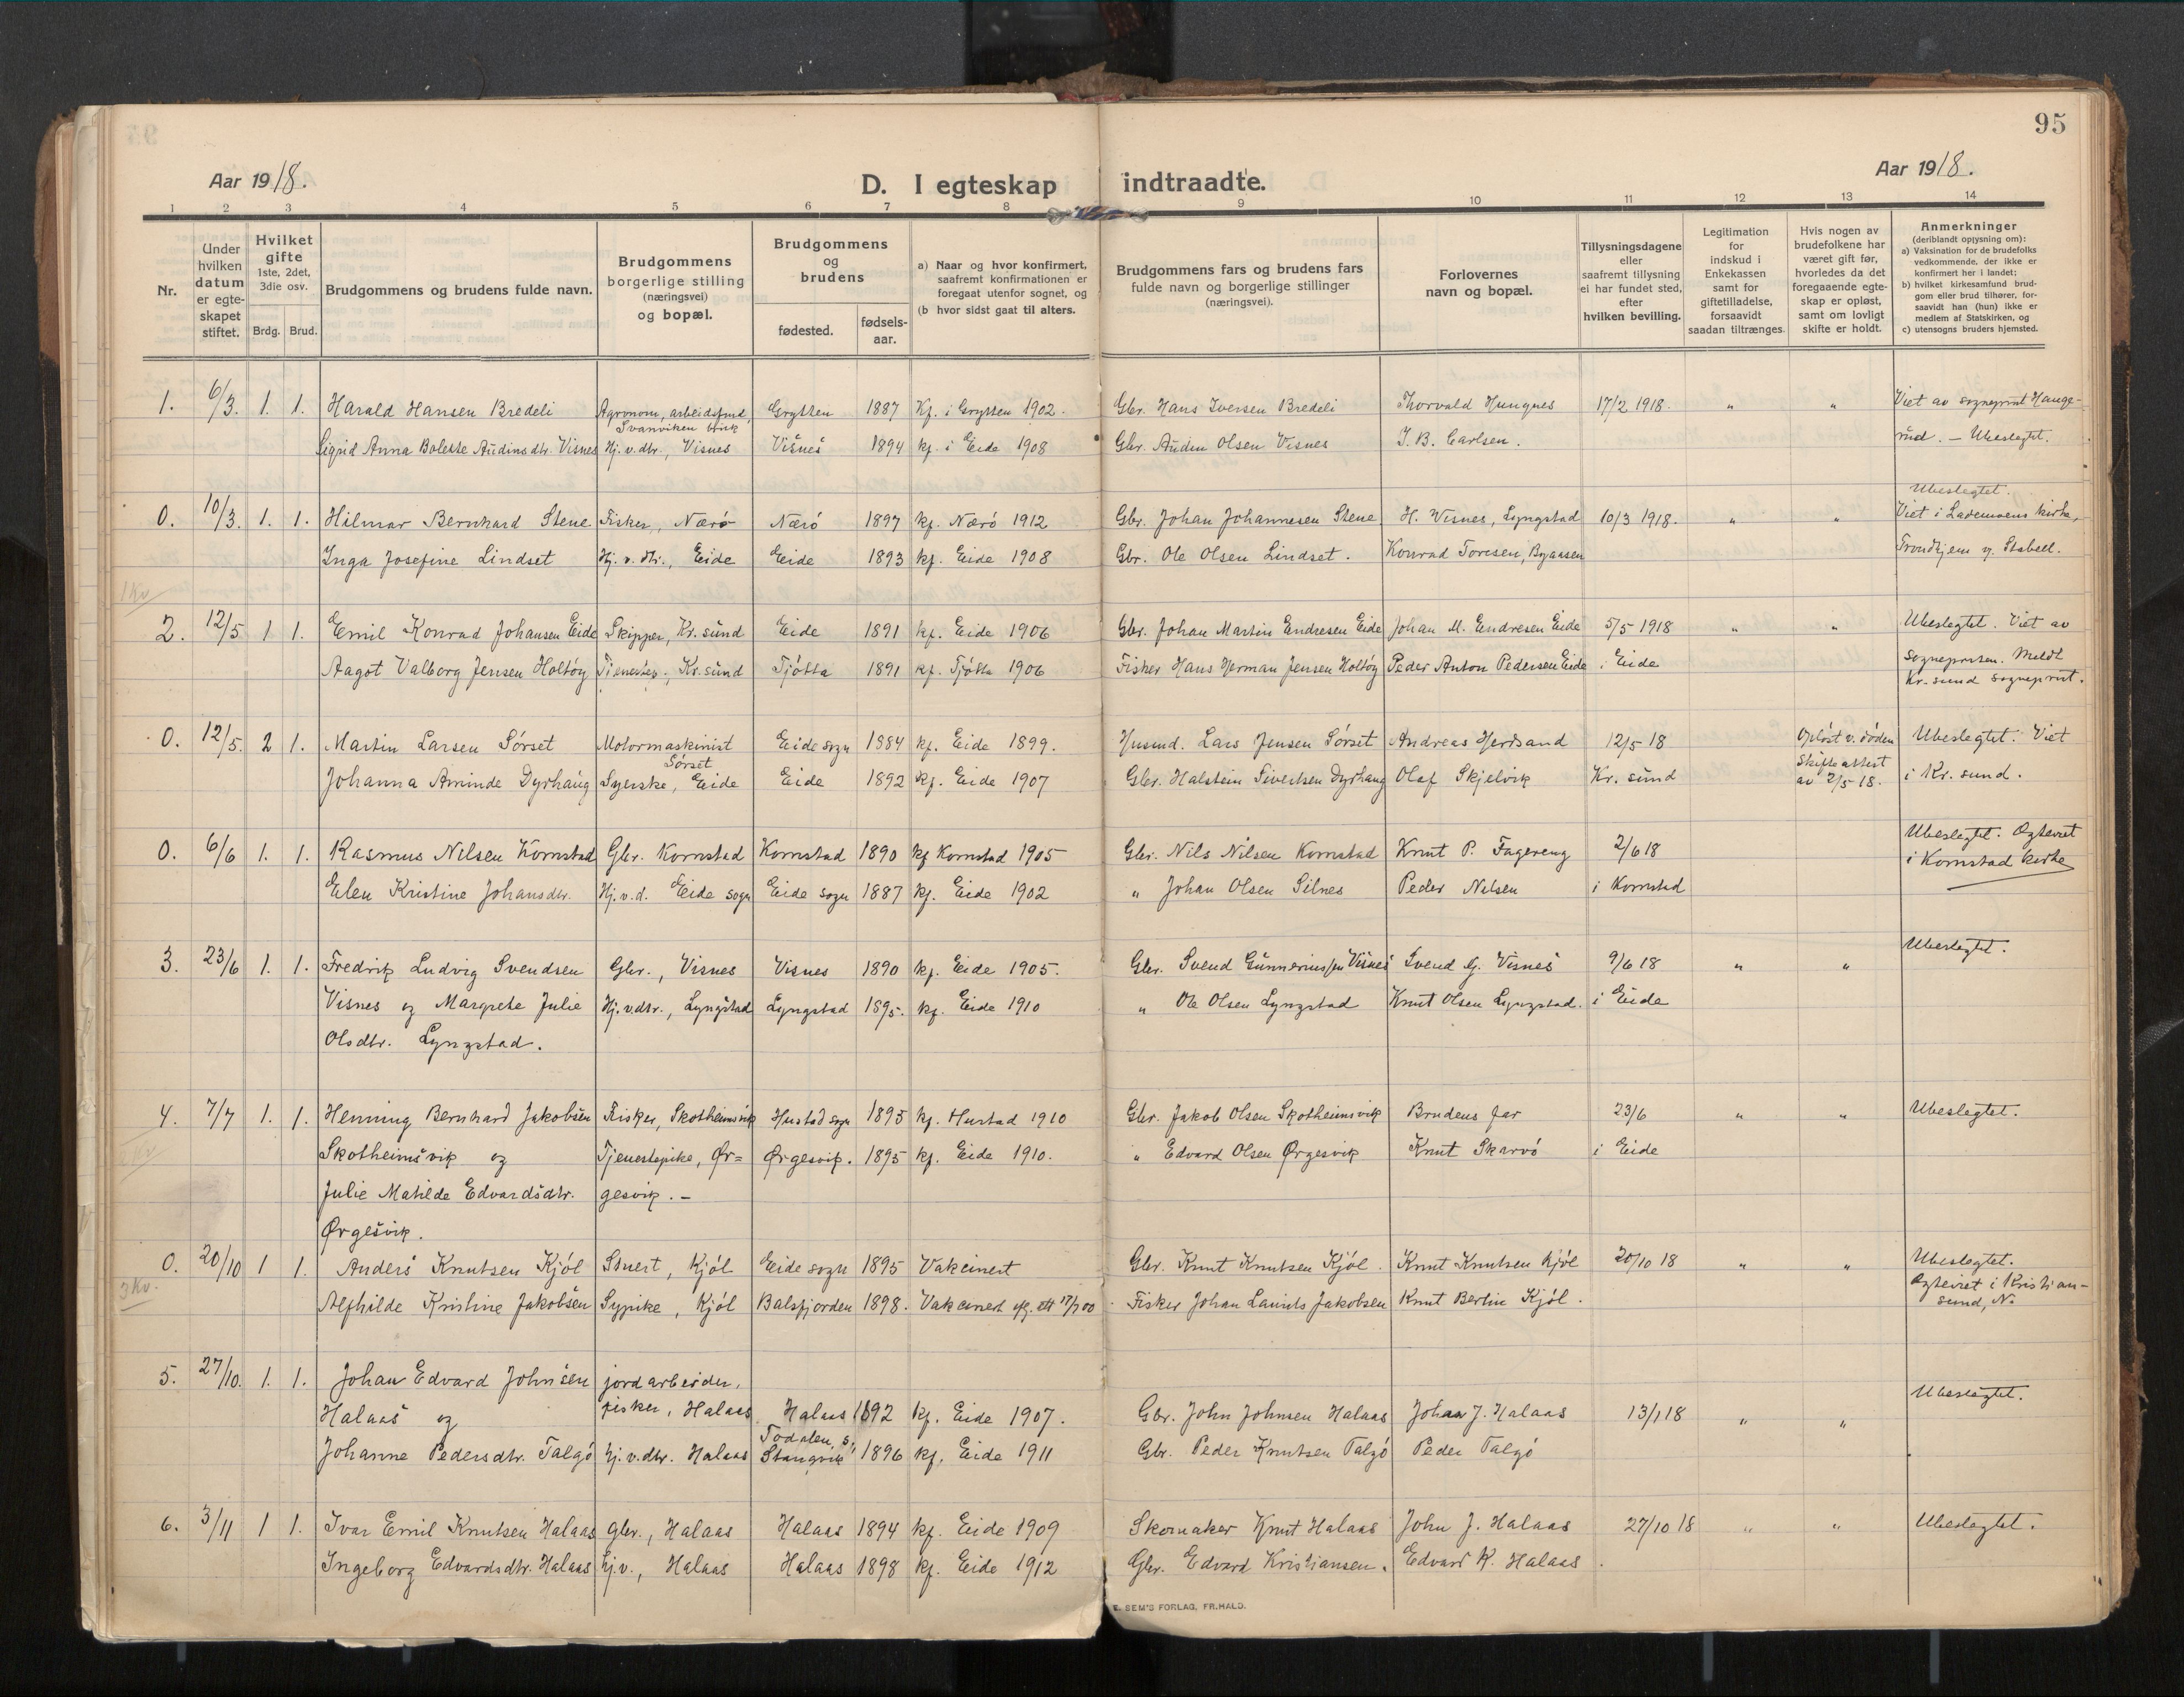 95
Aar 1918.
D. I egteskap indtraadte.
Aar 1918.
1 2 3 4 5 6 7 8 9 10 11 12 13 14
Nr.
Under hvilken datum er egte-skapet stiftet.
Hvilket gifte 1ste, 2det, 3die osv.
Brdg. Brud.
Brudgommens og brudens fulde navn.
Brudgommens borgerlige stilling (næringsvei) og bopæl.
Brudgommens og brudens
fødested.
fødsels-aar.
a) Naar og hvor konfirmert, saafremt konfirmationen er foregaat utenfor sognet, og
(b hvor sidst gaat til alters.
Brudgommens fars og brudens fars fulde navn og borgerlige stillinger (næringsvei).
Forlovernes navn og bopæl.
Tillysningsdagene eller saafremt tillysning ei har fundet sted, efter hvilken bevilling.
Legitimation for indskud i Enkekassen samt for giftetilladelse, forsaavidt saadan tiltrænges.
Hvis nogen av brudefolkene har været gift før, hvorledes da det foregaaende egte-skap er opløst, samt om lovligt skifte er holdt.
Anmerkninger (deriblandt oplysning om):
a) Vaksination for de brudefolks vedkommende, der ikke er konfirmert her i landet;
b) hvilket kirkesamfund brud-gom eller brud tilhører, for-saavidt han (hun) ikke er medlem af Statskirken, og
c) utensogns bruders hjemsted.
1. 6/3. 1. 1. Harald Hansen Bredeli Agronom, arbeidsfmd, Grytten 1887 Kf. i Grytten 1902. Gbr. Hans Iversen Bredeli Thorvald Hungnes 17/2 1918. " " Viet av sogneprest Hauge-
Svanviken bruk
Sigrid Anna Bolette Audinsdtr. Visnes Hj. v. dtr., Visnes Visnes 1894 kf. i Eide 1908 Gbr. Auden Olsen Visnes J. B. Carlsen. rud. – Ubeslegtet.
Ubeslegtet.
0. 10/3. 1. 1. Hilmar Bernhard Stene Fisker, Nærö Nærö 1897 kf. Nærö 1912 Gbr. Johan Johannesen Stene H. Visnes, Lyngstad 10/3 1918. " " Viet i Lademoens kirke,
Inga Josefine Lindset Hj. v. dtr., Eide Eide 1893 kf. Eide 1908 Gbr. Ole Olsen Lindset. Konrad Toresen, Byaasen Trondhjem v. Stabell.
1 Kv
2. 12/5 1 1. Emil Konrad Johansen Eide Skipper, Kr. sund Eide 1891 kf. Eide 1906 Gbr. Johan Martin Endresen Eide Johan M. Endresen Eide 5/5 1918 " " Ubeslegtet. Viet av
Aagot Valborg Jensen Holtöy Tjenestep., Kr. sund Tjötta 1891 kf. Tjötta 1906 Fisker Hans Herman Jensen Holtöy Peder Anton Pedersen Eide i Eide sognepresten. Meldt
Kr. sund sogneprest.
0. 12/5. 2 1. Martin Larsen Sörset Motormaskinist Eide sogn 1884 kf. Eide 1899. Husmd. Lars Jensen Sörset Andreas Herdsand 12/5 18 Oplöst v. döden Ubeslegtet. Viet
Sörset Skifteattest
Johanna Aminde Dyrhaug Syerske, Eide Eide 1892 kf. Eide 1907 Gbr. Halstein Sivertsen Dyrhaug Olaf Skjelvik Kr. sund av 2/5 18. i Kr. sund.
0. 6/6 1. 1. Rasmus Nilsen Kornstad Gbr. Kornstad Kornstad 1890 kf Kornstad 1905 Gbr. Nils Nilsen Kornstad Knut P. Fagereng 2/6 18 Ubeslegtet. Egteviet
Elen Kristine Johansdtr. Hj. v. d. Eide sogn Eide sogn 1887 kf. Eide 1902 " Johan Olsen Silnes Peder Nilsen i Kornstad i Kornstad kirke
3. 23/6 1. 1. Fredrik Ludvig Svendsen Gbr., Visnes Visnes 1890 kf. Eide 1905. Gbr. Svend Gunneriussen Visnes Svend G. Visnes 9/6 18 " " Ubeslegtet.
Visnes og Margrete Julie Hj. v. dtr., Lyngstad Lyngstad 1895. kf. Eide 1910 " Ole Olsen Lyngstad Knut Olsen Lyngstad. i Eide
Olsdtr. Lyngstad.
4. 7/7 1. 1. Henning Bernhard Jakobsen Fisker, Skotheimsvik Hustad sogn 1895 kf. Hustad 1910 Gbr. Jakob Olsen Skotheimsvik Brudens far 23/6 " " Ubeslegtet.
Skotheimsvik og Tjenestepike, Ør= Ørgesvik. 1895 kf. Eide 1910. " Edvard Olsen Ørgesvik Knut Skarvö i Eide
Julie Matilde Edvardsdtr. gesvik. –
Ørgesvik.
0. 20/10 1 1. Anders Knutsen Kjöl Stuert, Kjöl Eide sogn 1895 Vakcinert Gbr. Knut Knutsen Kjöl. Knut Knutsen Kjöl 20/10 18 " " Ubeslegtet.
3 Kv.
Alfhilde Kristine Jakobsen Sypike, Kjöl Balsfjorden 1898. Vakcinert Fisker Johan Laurits Jakobsen Knut Bertin Kjöl. Egteviet i Kristian-
sund, N.
5. 27/10. 1. 1. Johan Edvard Johnsen jordarbeider,
Halaas og fisker, Halaas Halaas 1892 kf. Eide 1907. Gbr. John Johnsen Halaas Johan J. Halaas 13/1 18 " " Ubeslegtet.
Todalen, s,
Johanne Pedersdtr. Talgö Hj. v. dtr. Halaas Stangvik 1896 kf. Eide 1911 Gbr. Peder Knutsen Talgö Peder Talgö
6. 3/11 1 1. Ivar Emil Knutsen Halaas gbr., Halaas Halaas 1894 kf. Eide 1909 Skomaker Knut Halaas John J. Halaas 27/10 18 " " Ubeslegtet.
Ingeborg Edvardsdtr. Halaas Hj. v., Halaas Halaas 1898 kf. Eide 1912 Gbr. Edvard Kristiansen. Edvard K. Halaas.
E. SEM'S FORLAG, FR.HALD.